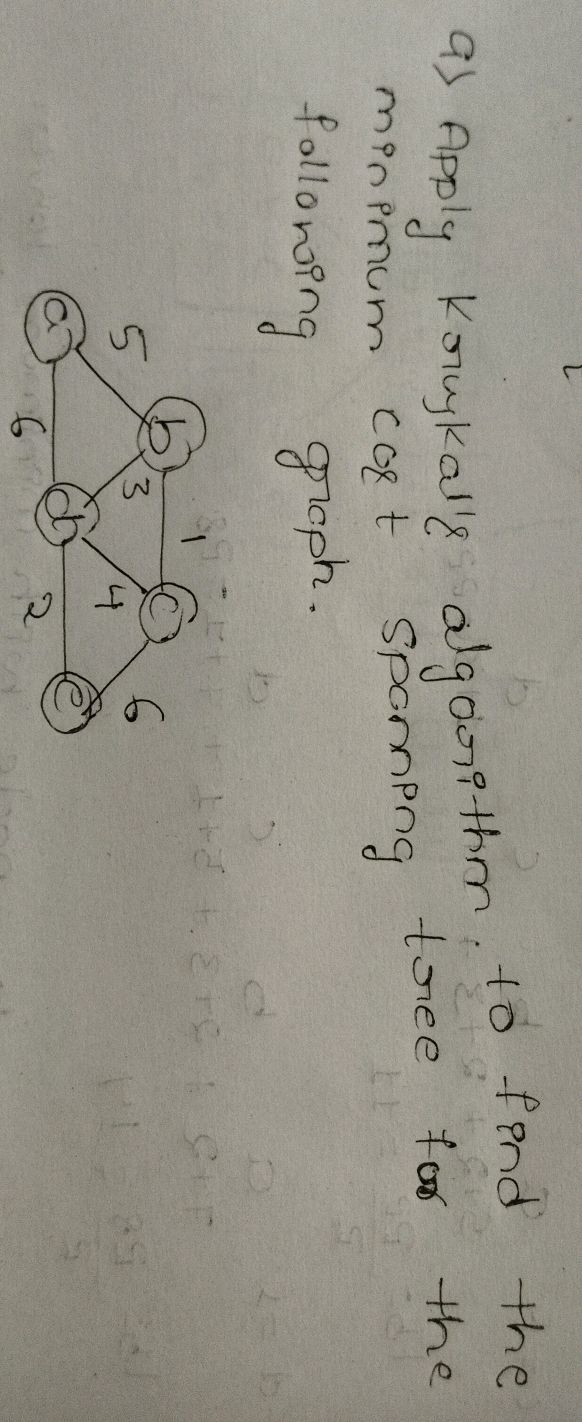 a) Apply Koruykal's algorithm to find the
minimum cost spanning tree for the
following graph.
5 b 1 c 6
a 3 4
6 d 2 e